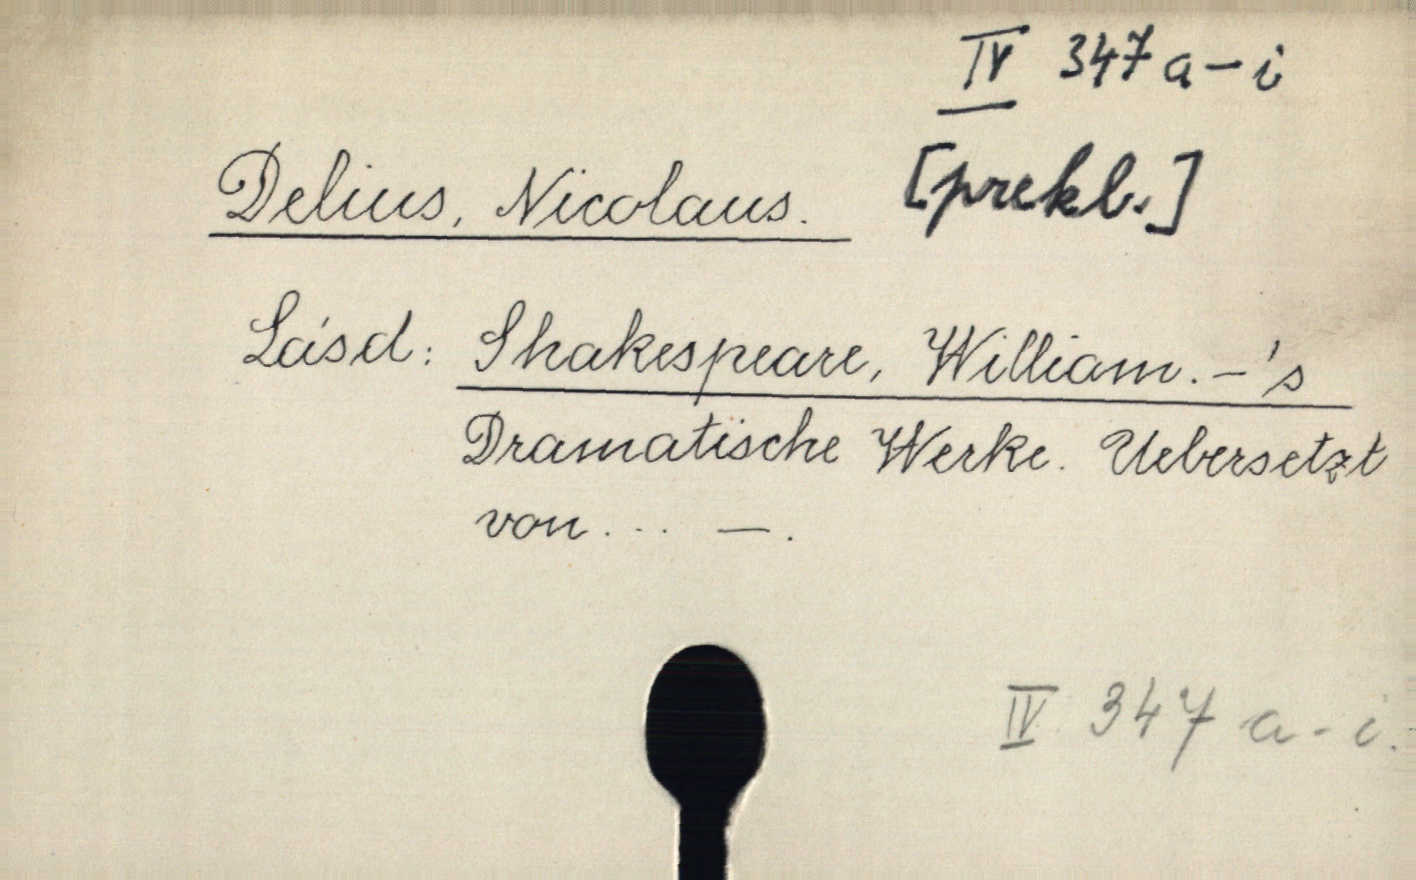 IV 347 a-i
Delius, Nicolaus. [prekl.]
Lásd: Shakespeare, William. -'s
Dramatische Werke. Uebersetzt
von ... -.
IV 347 a-i.